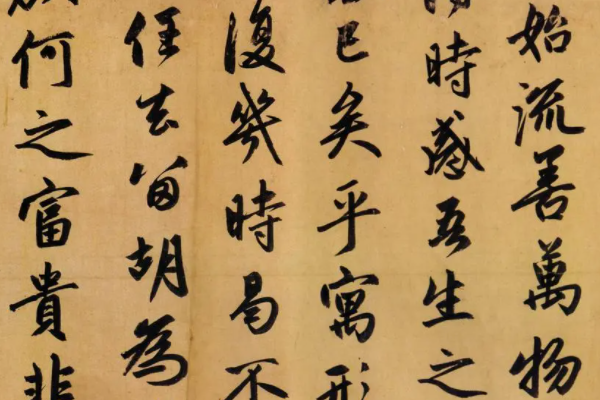 始流善萬物
時感吾生之
已矣乎寓形
復幾時曷不
任去留胡為
何之富貴非